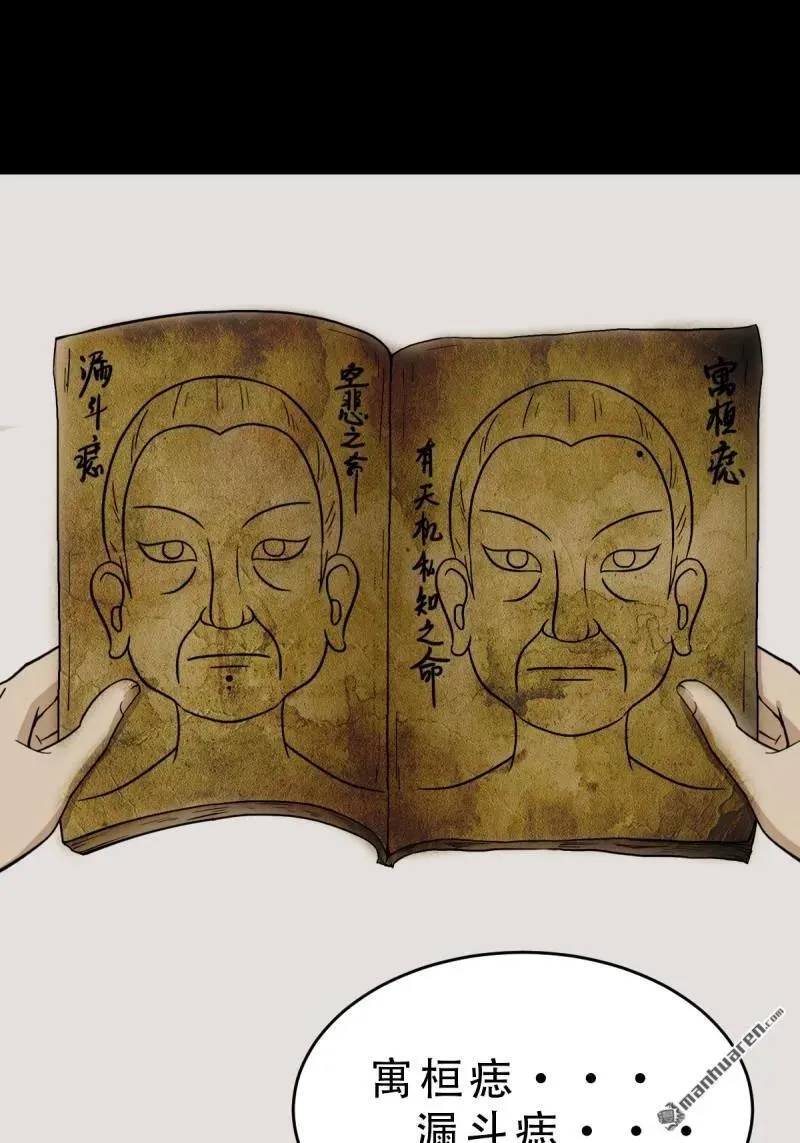 漏斗痣
空悲之命
有天机私知之命
寓桓痣
寓桓痣···
漏斗痣···
manhuaren.com